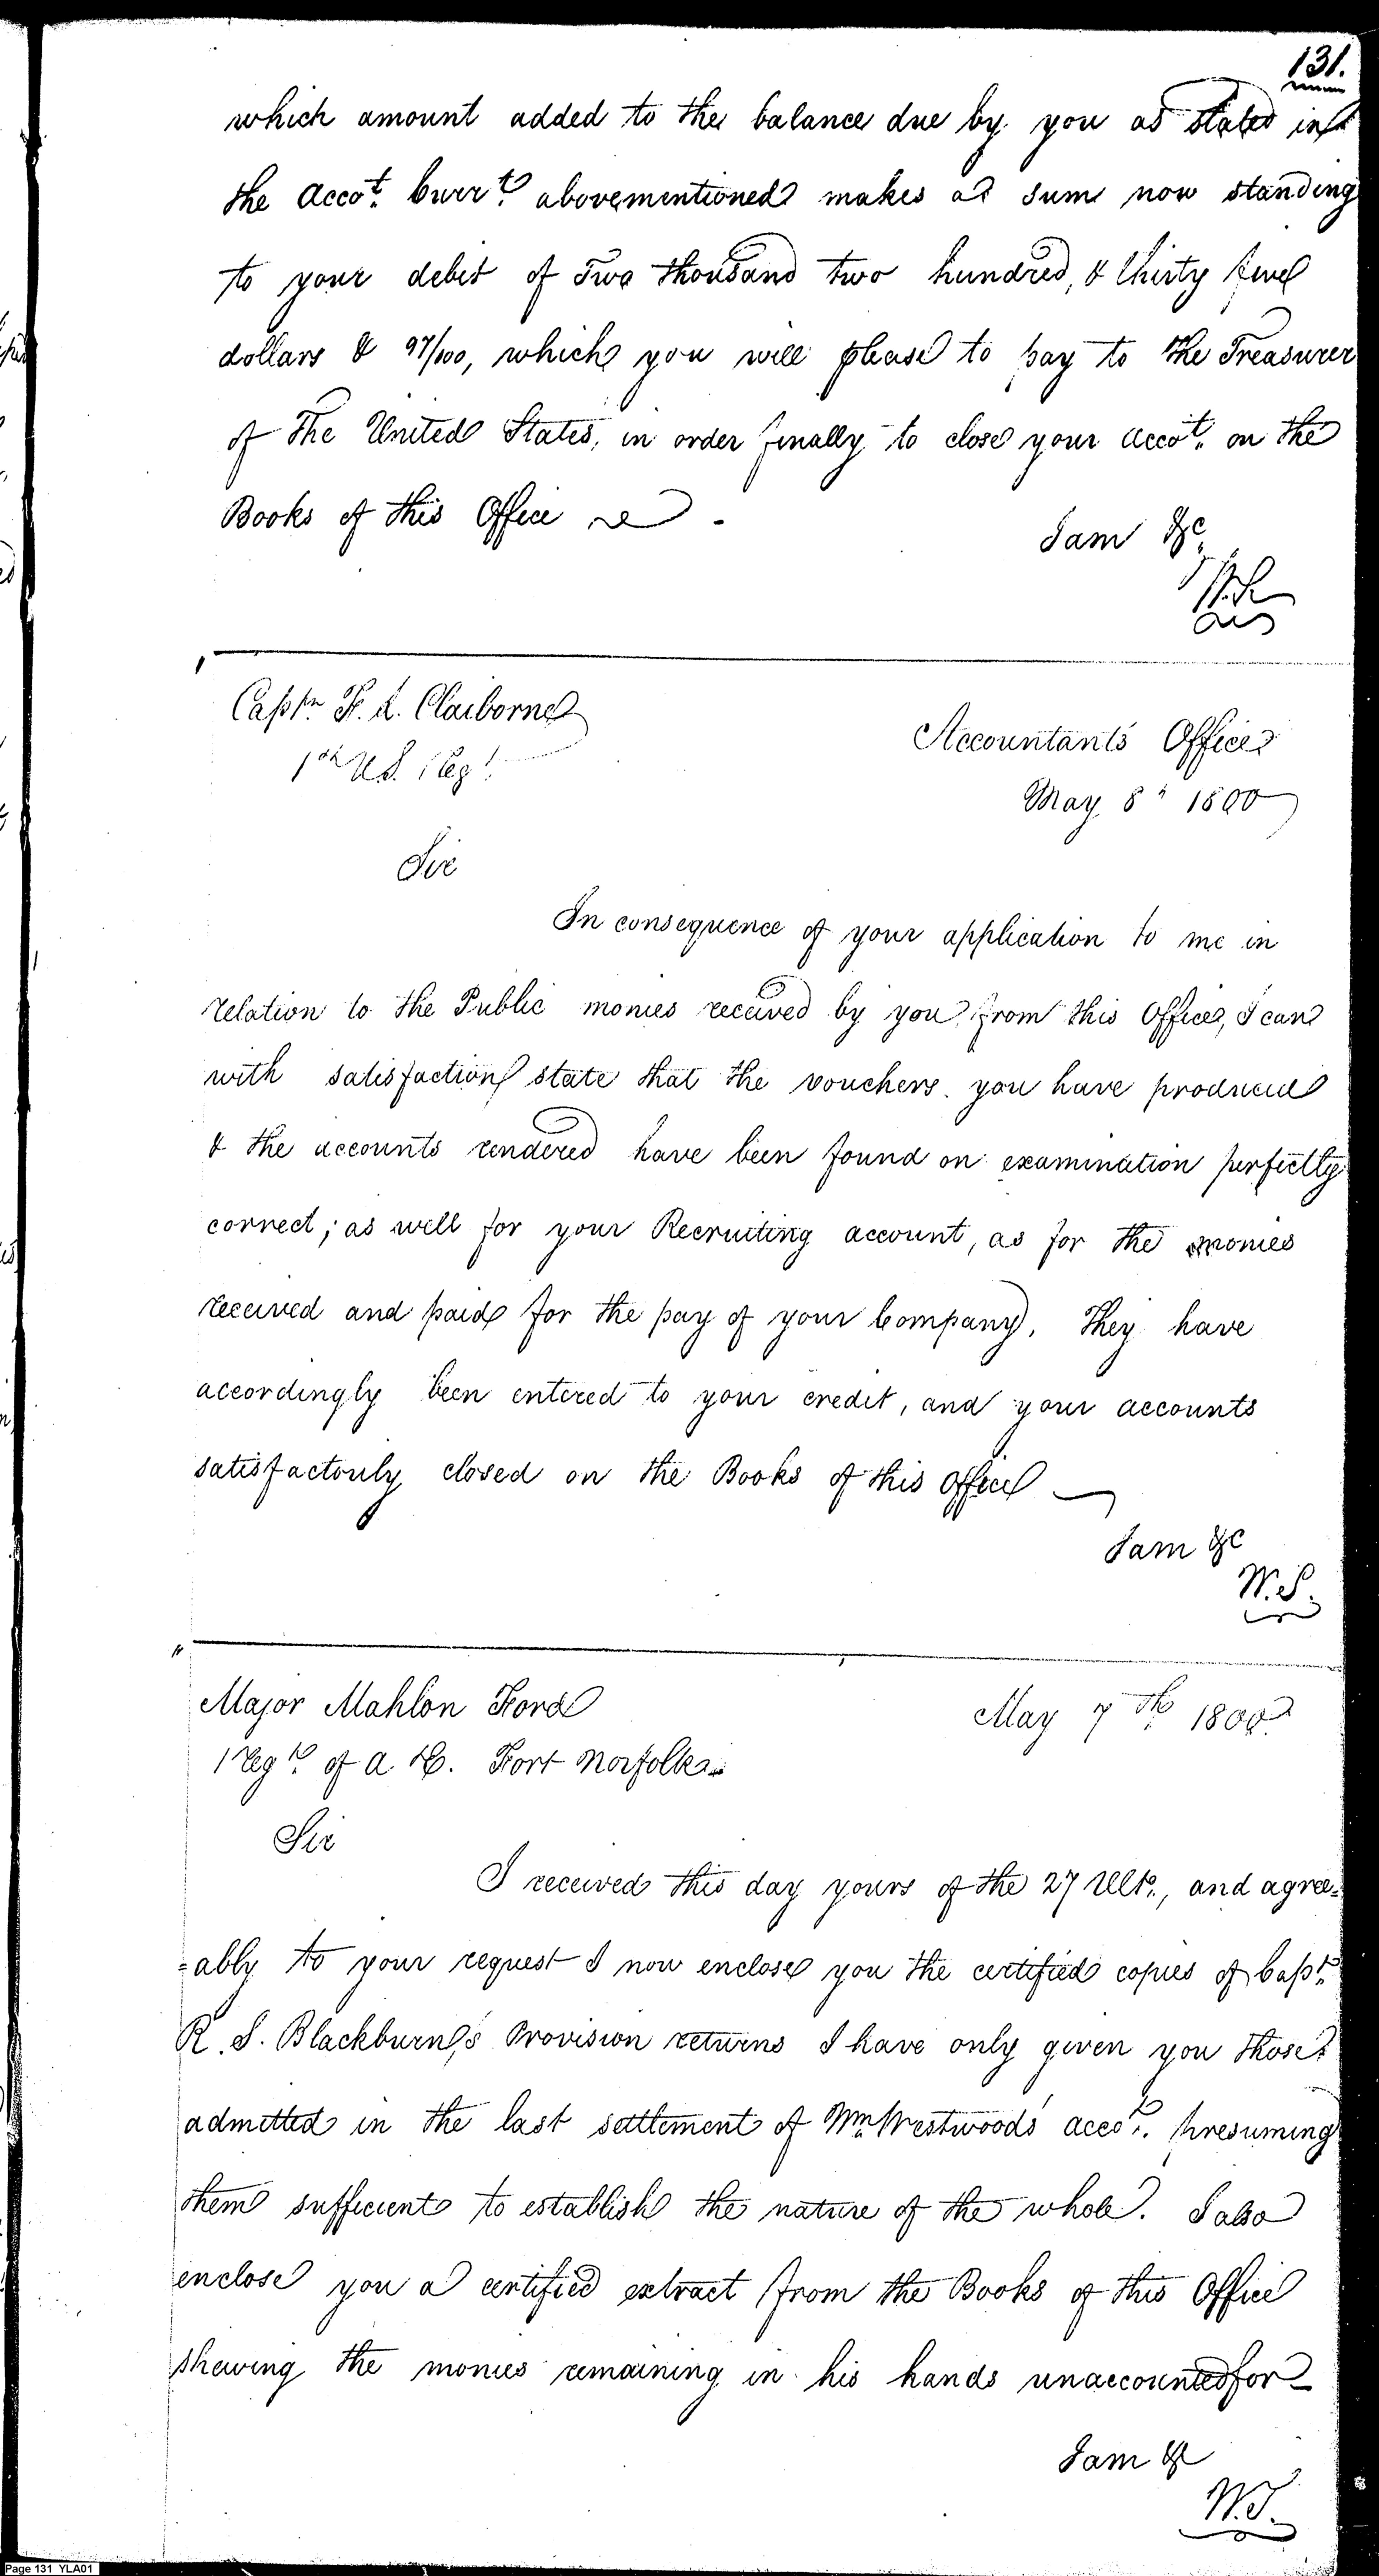 131.
which amount added to the balance due by you as stated in
the Accot. Currt. abovementioned makes a sum now standing
to your debit of Two thousand two hundred, & thirty five
dollars & 97/100, which you will please to pay to the Treasurer
of The United States, in order finally to close your Accot. on the
Books of this Office
I am &c.
W.S.
Captn. F. L. Claiborne
1st US. Regt.
Accountants Office
May 8th 1800
Sir
In consequence of your application to me in
relation to the Public monies received by you from this Office, I can
with satisfaction state that the vouchers you have produced
& the accounts rendered have been found on examination perfectly
correct; as well for your Recruiting account, as for the monies
received and paid for the pay of your Company. They have
accordingly been entered to your credit, and your accounts
satisfactorily closed on the Books of this Office
I am &c
W.S.
Major Mahlon Ford
1 Regt. of A &. Fort Norfolk
May 7th. 1800
Sir
I received this day yours of the 27 Ulto., and agree=
=ably to your request I now enclose you the certified copies of Capt.
R. S. Blackburn's Provision returns I have only given you those
admitted in the last settlement of Wm. Westwoods' accot. presuming
them sufficient to establish the nature of the whole. I also
enclose you a certified extract from the Books of this Office
shewing the monies remaining in his hands unaccounted for
I am &
W.S.
Page 131 YLA01